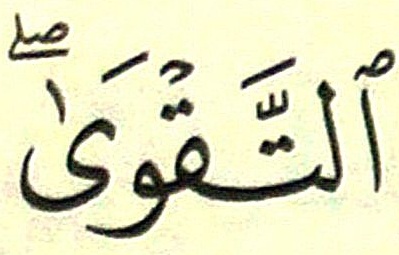 ٱلتَّقْوَىٰۖ